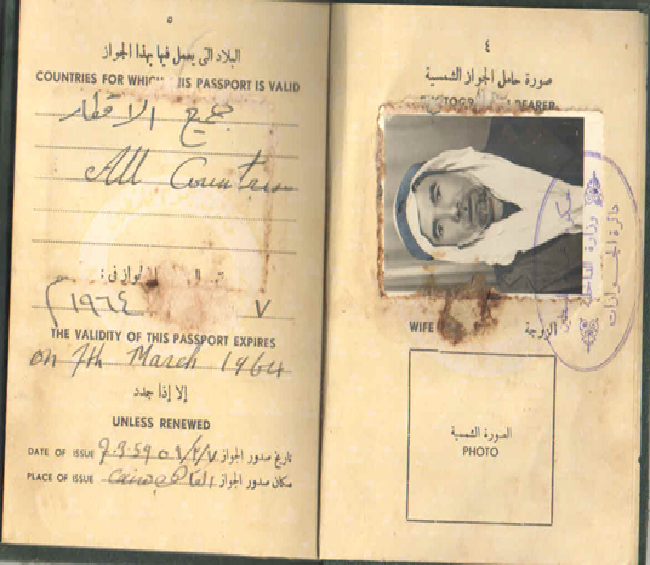 ٥
البلاد التي يعمل فيها بهذا الجواز
COUNTRIES FOR WHICH THIS PASSPORT IS VALID
جميع الاقطار
All Countries
الجواز في :
٧ ١٩٦٤ م
THE VALIDITY OF THIS PASSPORT EXPIRES
on 7th March 1964
إلا إذا جدد
UNLESS RENEWED
DATE OF ISSUE 7-3-59 ٥٩/٣/٧ تاريخ صدور الجواز
PLACE OF ISSUE Cairo القاهرة مكان صدور الجواز
٤
صورة حامل الجواز الشمسية
BEARER
وزارة الداخلية
دائرة الجوازات
WIFE الزوجة
الصورة الشمسية
PHOTO